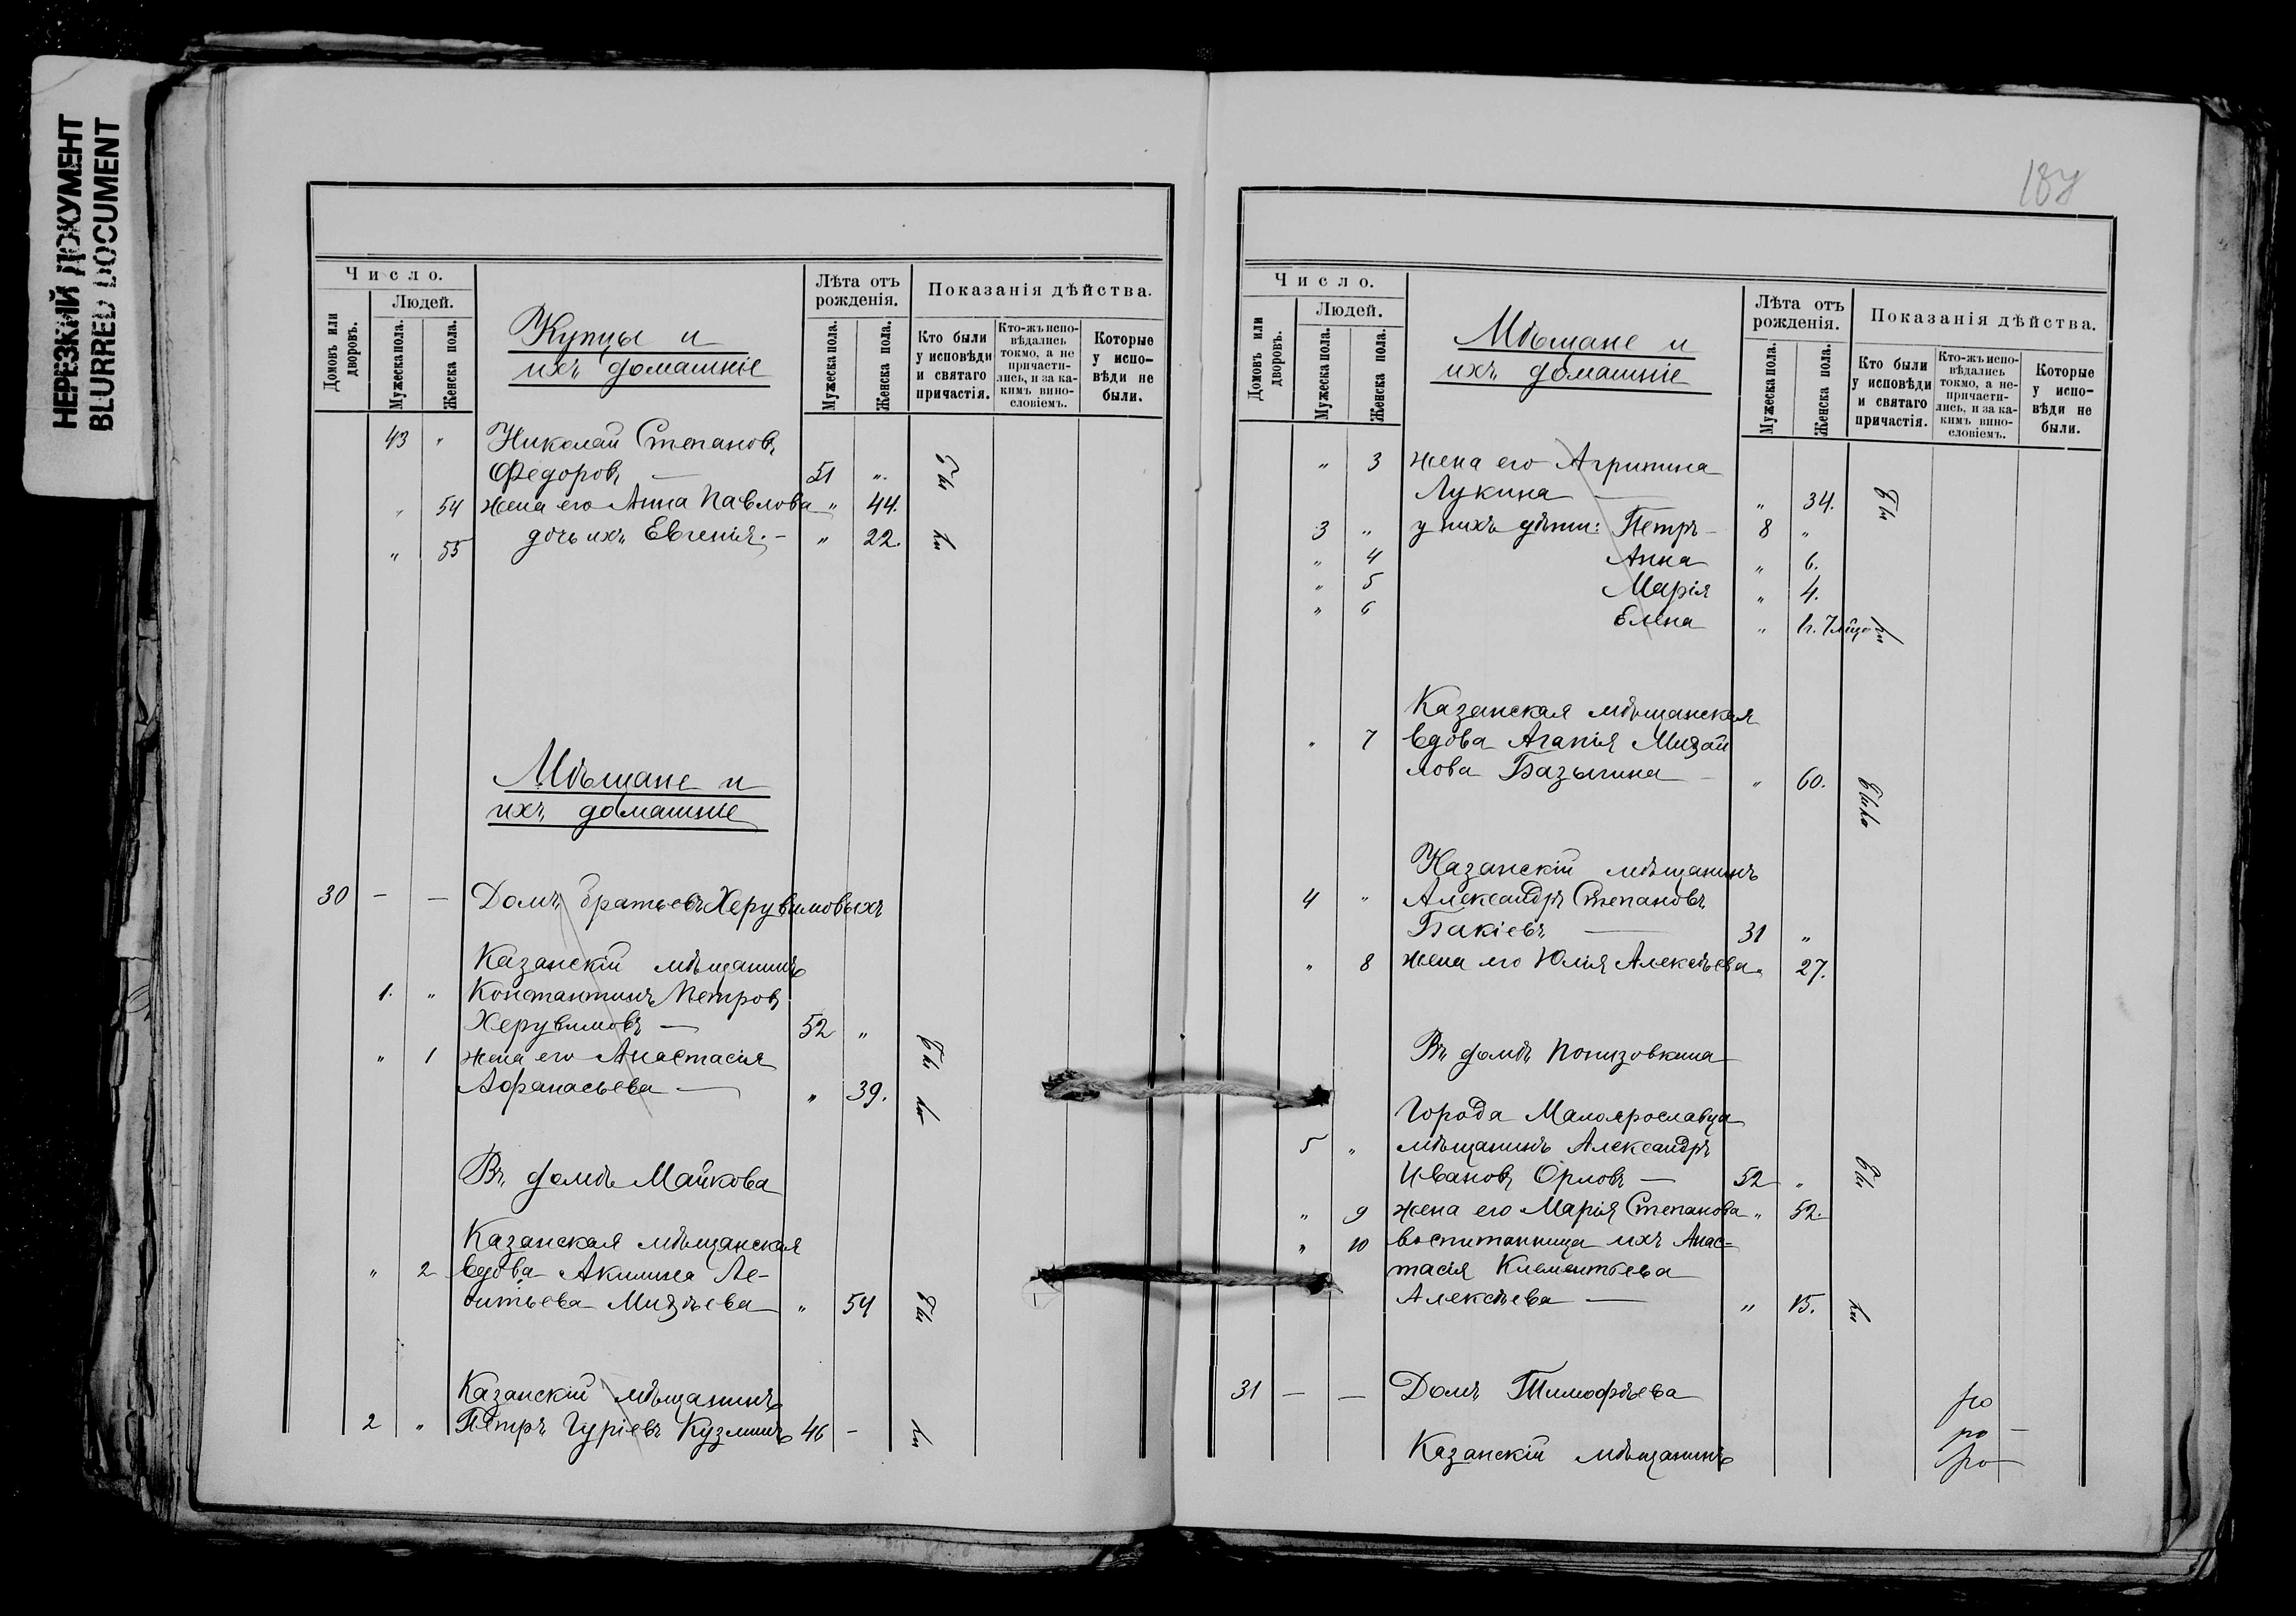 НЕРЕЗКИЙ ДОКУМЕНТ
BLURRED DOCUMENT
Число.
Людей.
Домовъ или дворовъ.
Мужеска пола.
Женска пола.
Купцы и
ихъ домашніе
Лѣта отъ рожденія.
Мужеска пола.
Женска пола.
Показанія дѣйства.
Кто были у исповѣди и святаго причастія.
Кто-жъ исповѣдались токмо, а не причастились, и за какимъ винословіемъ.
Которые у исповѣди не были.
43 " Николай Степановъ
Федоровъ — 51 "
" 54 жена его Анна Павлова " 44.
" 55 дочь ихъ Евгенія. – " 22.
Мѣщане и
ихъ домашніе
30 — — Домъ братьевъ Херувимовыхъ
Казанскій мѣщанинъ
1. " Константинъ Петровъ
Херувимовъ — 52 "
" 1 жена его Анастасія
Афанасьева — " 39.
Въ домѣ Майкова
Казанская мѣщанская
" 2 вдова Акилина Ле-
онтьева " 54
Казанскій мѣщанинъ
2 " Петръ Гуріевъ Кузминъ 46 –
Число.
Людей.
Домовъ или дворовъ.
Мужеска пола.
Женска пола.
Мѣщане и
ихъ домашніе
Лѣта отъ рожденія.
Мужеска пола.
Женска пола.
Показанія дѣйства.
Кто были у исповѣди и святаго причастія.
Кто-жъ исповѣдались токмо, а не-причастились, и за какимъ винословіемъ.
Которые у исповѣди не были.
" 3 жена его Агрипина
Лукина — " 34.
3 " у нихъ дѣти: Петръ – 8 "
" 4 Анна " 6.
" 5 Марія " 4.
" 6 Елена "
Казанская мѣщанская
" 7 вдова Агапія Михай
лова – " 60. были
Казанскій мѣщанинъ
4 " Александръ Степановъ
Бакіевъ — 31 "
" 8 жена его Юлія Алексѣева " 27.
Въ домѣ Понизовкина
Города Малоярославца
5 " мѣщанинъ Александръ
Ивановъ Орловъ — 52 "
" 9 жена его Марія Степанова " 52.
" 10 воспитанница ихъ Анас=
тасія Климентьева
Алексѣева — " 15.
31 — — Домъ Тимофѣева
Казанскій мѣщанинъ